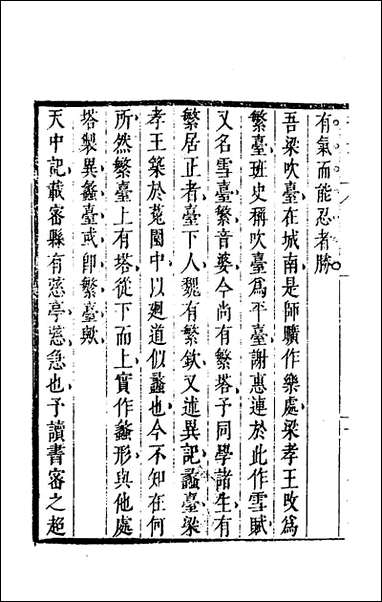 有氣而能忍者勝
吾梁吹臺在城南是師曠作樂處梁孝王改爲
繁臺班史稱吹臺爲平臺謝惠連於此作雪賦
又名雪臺繁音婆今尚有繁塔子同學諸生有
繁居正者臺下人魏有繁欽又述異記蠡臺梁
孝王築於菟園中以廻道似蠡也今不知在何
所然繁臺上有塔從下而上實作蠡形與他處
塔製異蠡臺或卽繁臺歟
天中記載密縣有㥛亭㥛急也予讀書密之超